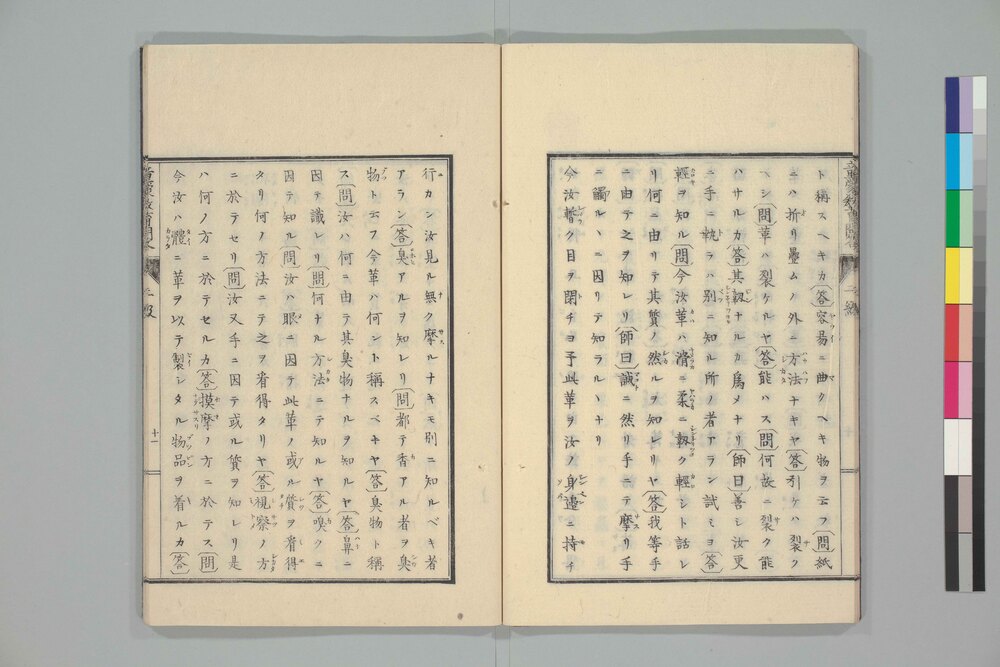 ト稱スヘキカ〔答〕容易ニ曲クヘキ物ヲ云フ〔問〕紙
ニハ折リ疊ムノ外ニ方法ナキヤ〔答〕引ケハ裂ク
ヘシ〔問〕革ハ裂ケルヤ〔答〕能ハス〔問〕何故ニ裂ク能
ハサルカ〔答〕其靱ナルカ爲メナリ〔師曰〕善シ汝更
ニ手ニ執ラハ別ニ知ル所ノ者アラン試ミヨ〔答〕
輕ヲ知ル〔問〕今汝革ハ滑ニ柔ニ靱ク輕シト話レ
リ何ニ由リテ其質ノ然ルヲ知レリヤ〔答〕我等手
ニ由テ之ヲ知レリ〔師曰〕誠ニ然リ手ニテ摩リ手
ニ觸ルヽニ因リテ知ラルヽナリ
今汝暫ク目ヲ閉チヨ予此革ヲ汝ノ身邊ニ持チ
行カン汝見ル無ク摩ルナキモ別ニ知ルベキ者
アラン〔答〕臭アルヲ知レリ〔問〕都テ香アル者ヲ臭
物ト云フ今革ハ何ント稱スベキヤ〔答〕臭物ト稱
ス〔問〕汝ハ何ニ由テ其臭物ナルヲ知ルヤ〔答〕鼻ニ
因テ識レリ〔問〕何ナル方法ニテ知ルヤ〔答〕嗅クニ
因テ知ル〔問〕汝ハ眼ニ因テ此革ノ或ル質ヲ看得
タリ何ノ方法ニテ之ヲ看得タリヤ〔答〕視察ノ方
ニ於テセリ〔問〕汝又手ニ因テ或ル質ヲ知レリ是
ハ何ノ方ニ於テセルカ〔答〕摸摩ノ方ニ於テス〔問〕
今汝ハ體ニ革ヲ以テ製シタル物品ヲ着ルカ〔答〕
十一